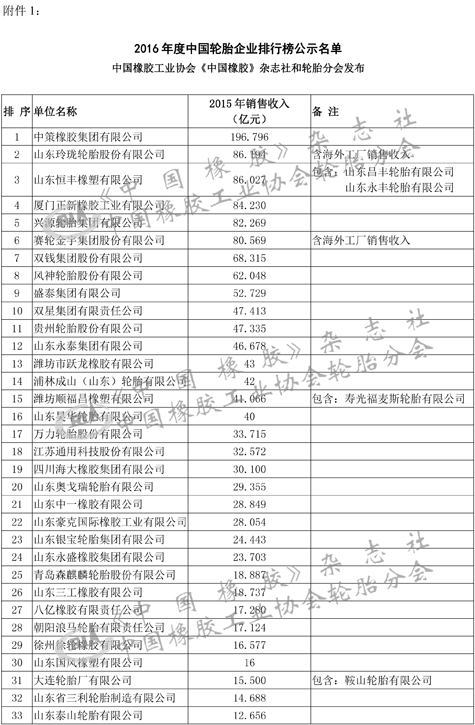 附件 1：
2016 年度中国轮胎企业排行榜公示名单
中国橡胶工业协会《中国橡胶》杂志社和轮胎分会发布
排 序 单位名称 2015 年销售收入（亿元） 备 注
1 中策橡胶集团有限公司 196.796
2 山东玲珑轮胎股份有限公司 86.194 含海外工厂销售收入
3 山东恒丰橡塑有限公司 86.027 包含：山东昌丰轮胎有限公司
山东永丰轮胎有限公司
4 厦门正新橡胶工业有限公司 84.230
5 兴源轮胎集团有限公司 82.269
6 赛轮金宇集团股份有限公司 80.569 含海外工厂销售收入
7 双钱集团股份有限公司 68.315
8 风神轮胎股份有限公司 62.048
9 盛泰集团有限公司 52.729
10 双星集团有限责任公司 47.413
11 贵州轮胎股份有限公司 47.335
12 山东永泰集团有限公司 46.678
13 潍坊市跃龙橡胶有限公司 43
14 浦林成山（山东）轮胎有限公司 42
15 潍坊顺福昌橡塑有限公司 41.066 包含：寿光福麦斯轮胎有限公司
16 山东昊华轮胎有限公司 40
17 万力轮胎股份有限公司 33.715
18 江苏通用科技股份有限公司 32.572
19 四川海大橡胶集团有限公司 30.100
20 山东奥戈瑞轮胎有限公司 29.355
21 山东中一橡胶有限公司 28.849
22 山东豪克国际橡胶工业有限公司 28.054
23 山东银宝轮胎集团有限公司 24.443
24 山东永盛橡胶集团有限公司 23.703
25 青岛森麒麟轮胎股份有限公司 18.887
26 山东三工橡胶有限公司 18.737
27 八亿橡胶有限责任公司 17.280
28 朝阳浪马轮胎有限责任公司 17.124
29 徐州徐轮橡胶有限公司 16.577
30 山东国风橡塑有限公司 16
31 大连轮胎厂有限公司 15.500 包含：鞍山轮胎有限公司
32 山东省三利轮胎制造有限公司 14.688
33 山东泰山轮胎有限公司 12.656
《中国橡胶》杂志社
中国橡胶工业协会轮胎分会
《中国橡胶》杂志社
中国橡胶工业协会轮胎分会
《中国橡胶》杂志社
中国橡胶工业协会轮胎分会